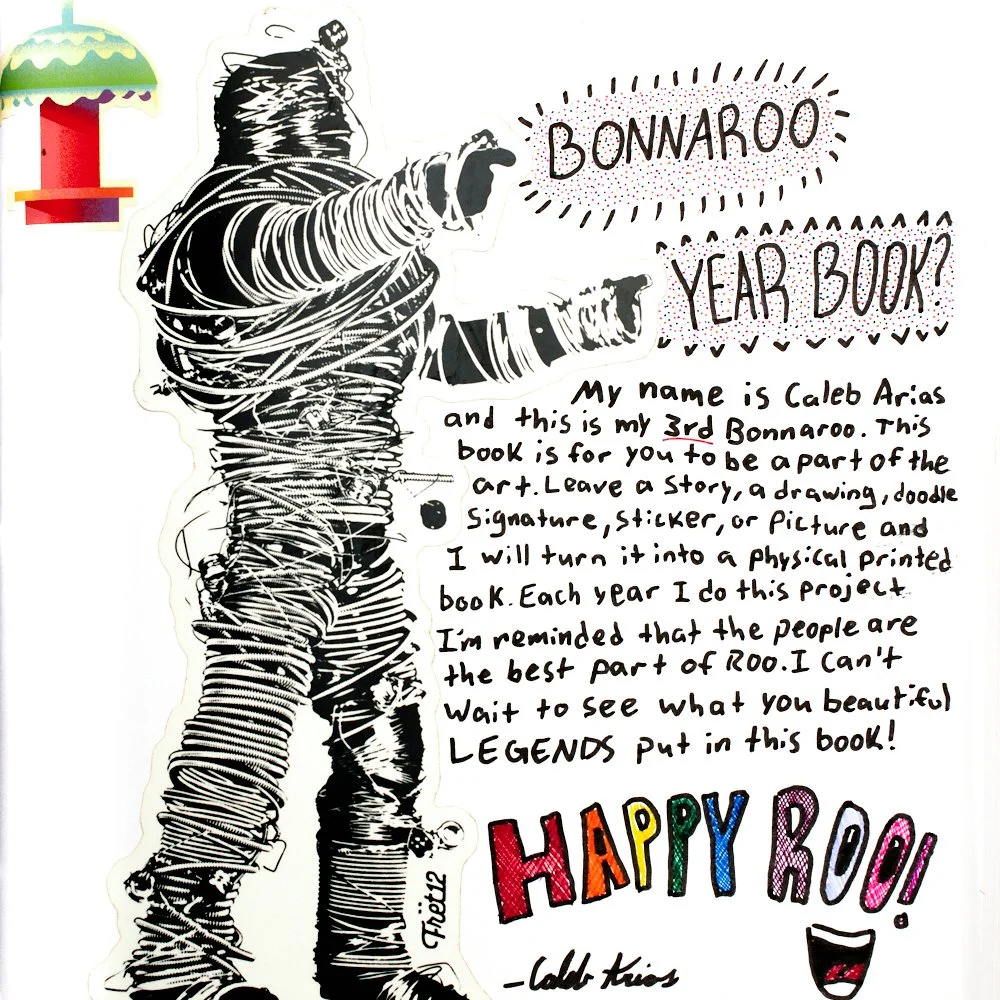 BONNAROO
YEAR BOOK?
My name is Caleb Arias
and this is my 3rd Bonnaroo. This
book is for you to be a part of the
art. Leave a Story, a drawing, doodle
Signature, Sticker, or Picture and
I will turn it into a physical printed
book. Each year I do this project
I'm reminded that the people are
the best part of Roo. I Can't
Wait to see what you beautiful
LEGENDS put in this book!
HAPPY ROO!
Frët12
-Caleb Arias